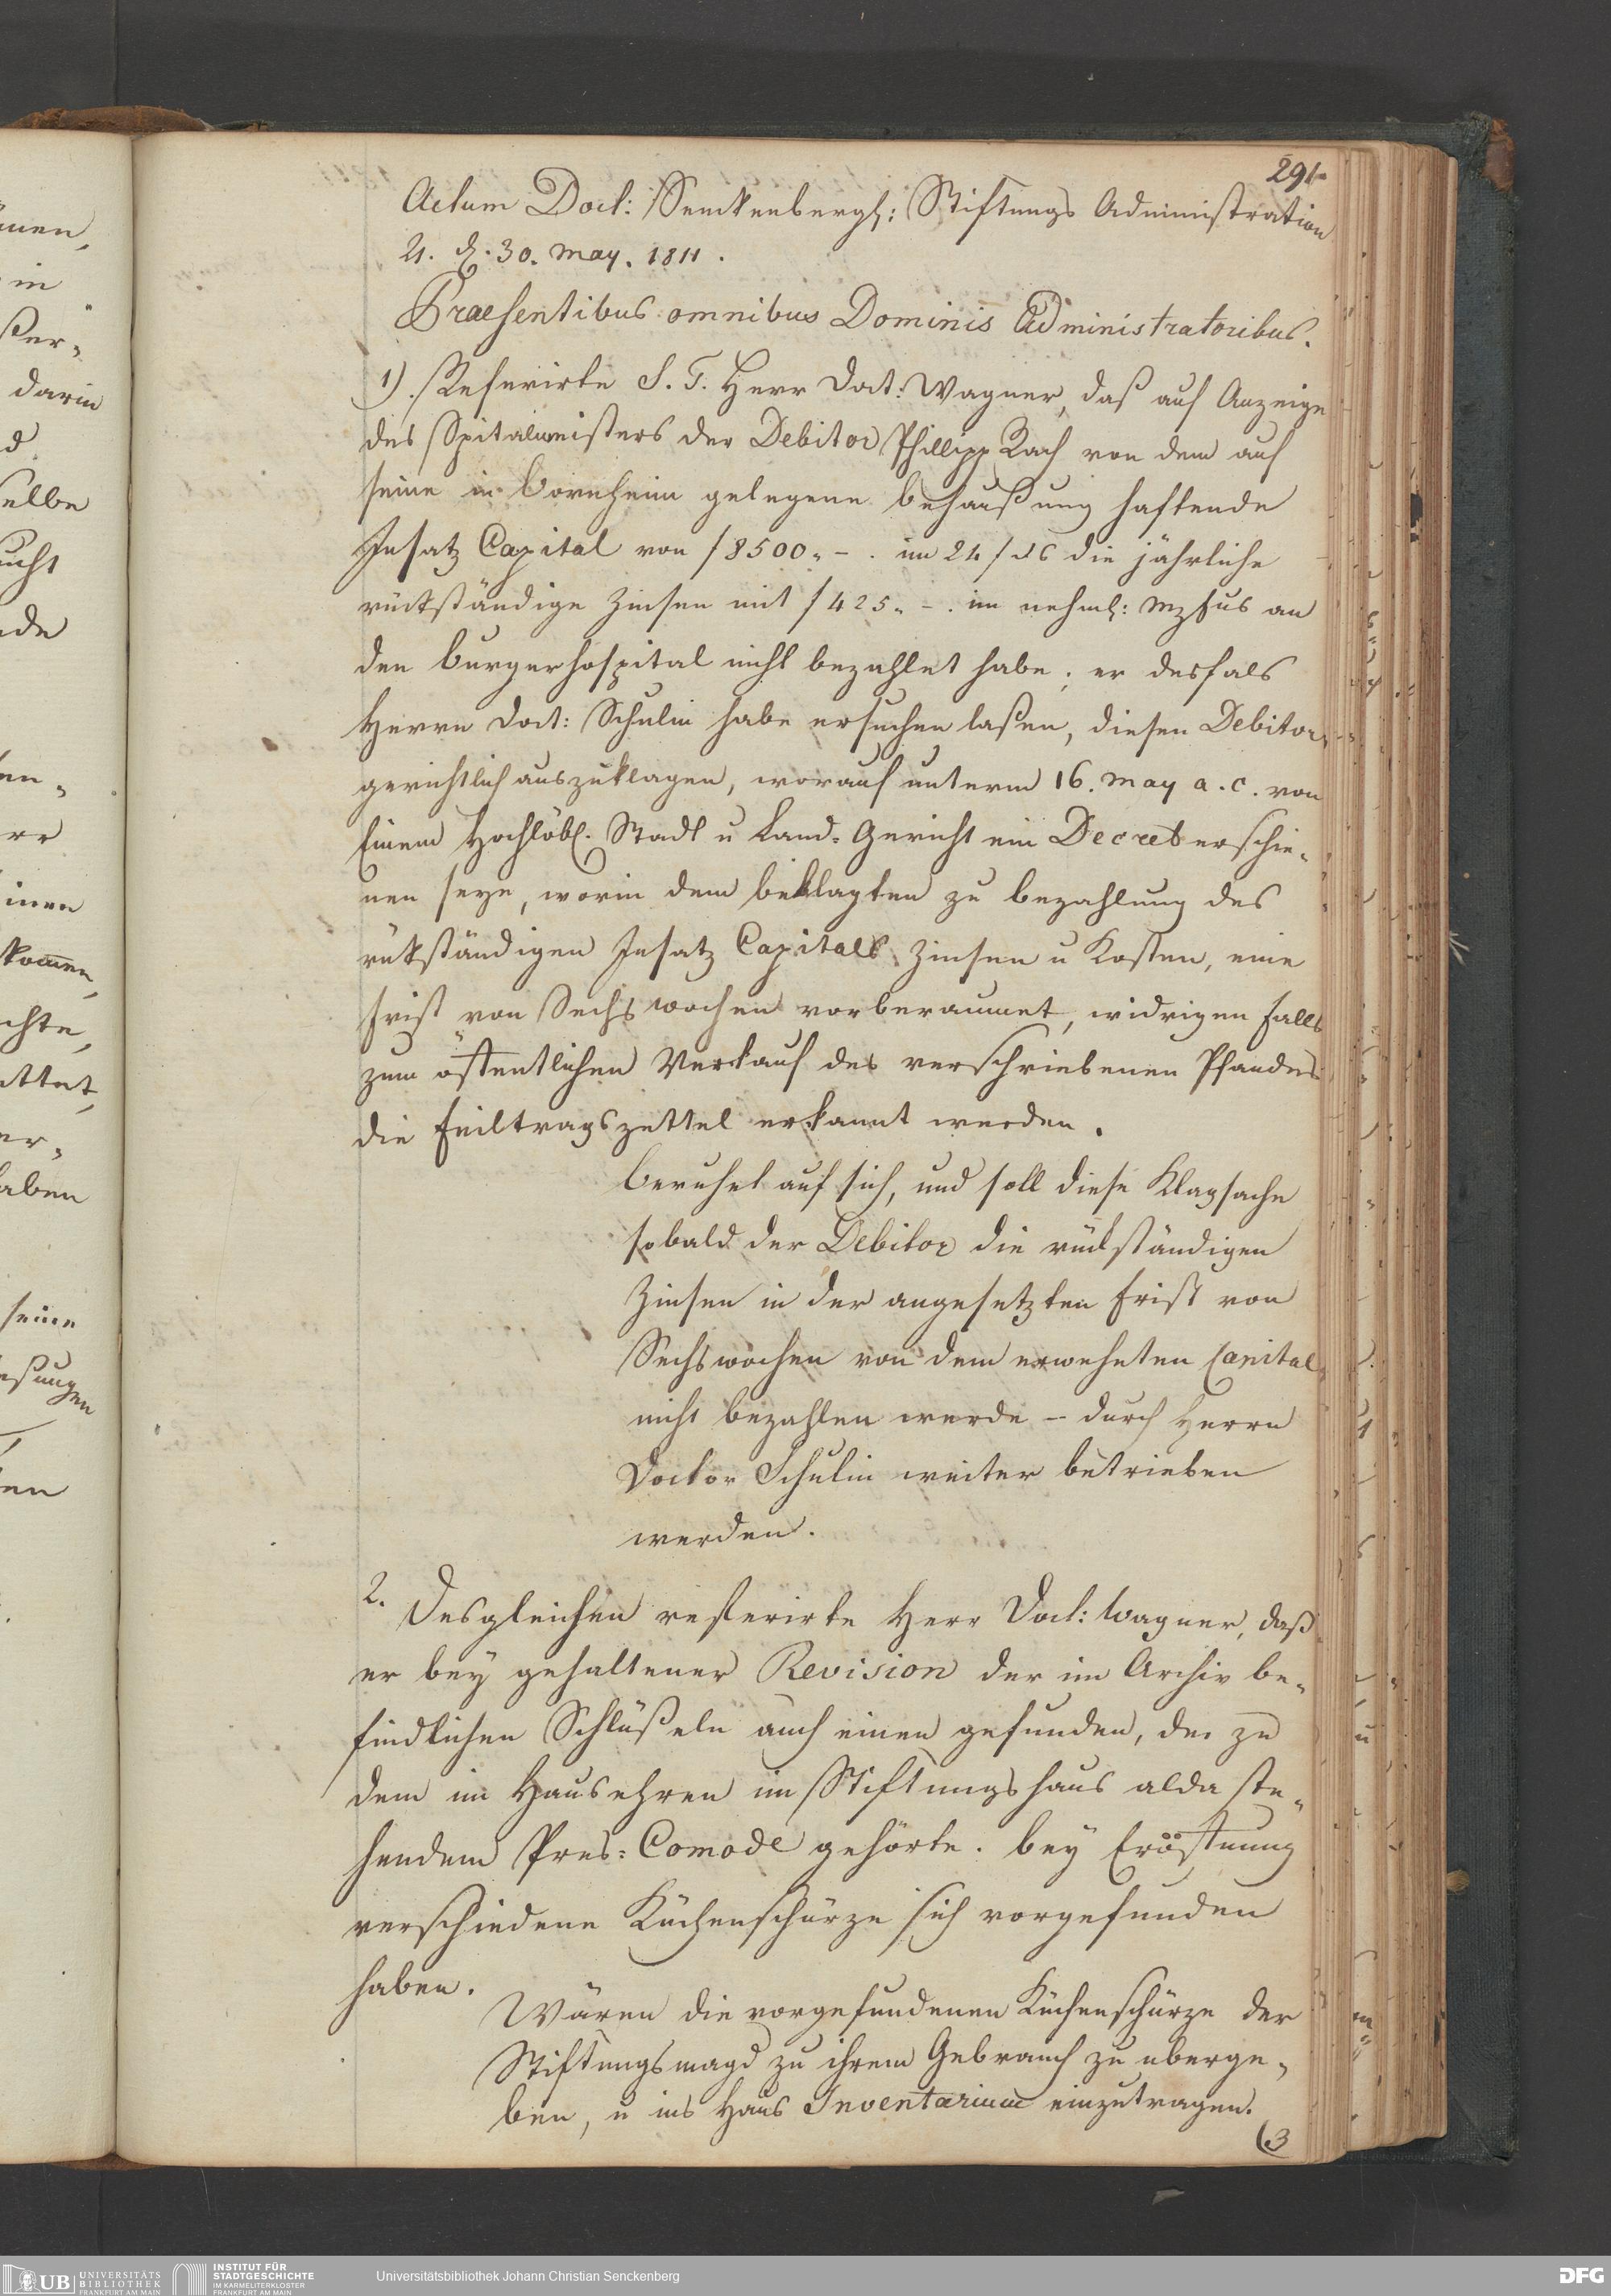 291.
Actum Doct: Senckenbergl: Stiftungs Administration
d. 30. May. 1811.
Praesentibus omnibus Dominis Administratoribus.
1). Referirte S. T. Herr Doct: Wagner, daß auf Anzeige
des Spitalmeisters der Debitor Phillipp Rach von dem auf
seine in Bornheim gelegene Behaußung haftende
Insatz Capital von f 8500.,–. im 24 f die jährliche
rückständige Zinsen mit f 425.,–. im nehml: an
den Burgerhospital nicht bezahlet habe; er desfals
Herrn Doct: Schulin habe ersuchen laßen, diesen Debitor
gerichtlich auszuklagen, worauf unterm 16. May a. c. von
Einem Hochlöbl. Stadt u Land-Gericht ein Decret erschie-
nen seye, worin dem beklagten zu bezahlung des
rükständigen Insatz Capitals Zinsen u Kosten, eine
Frist von Sechs wochen vorberaumet, widrigen Falls
zum öffentlichen Verkauf des verschriebenen Pfandes
die Feiltragszettel erkannt werden.
Beruhet auf sich, und soll diese Klagsache
sobald der Debitor die rückständigen
Zinsen in der angesetzten Frist von
Sechswochen von dem erwehnten Capital
nicht bezahlen werde – durch Herrn
Doctor Schulin weiter betrieben
werden.
2. Desgleichen referirte Herr Doct: Wagner, daß
er bey gehaltener Revision der im Archiv be-
findlichen Schlüßeln auch einen gefunden, der zu
dem im Hausehren im Stiftungshaus alda ste-
hendem Pres-Comode gehörte. bey Eröffnung
verschiedene Küchenschürze sich vorgefunden
haben.
Wären die vorgefundenen Küchenschürze der
Stiftungsmagd zu ihrem Gebrauch zu überge-
ben, u ins Haus Inventarium einzutragen.
(3
in
darin
elbe
kommen,
chte,
aben
seine
UB UNIVERSITÄTS
BIBLIOTHEK
FRANKFURT AM MAIN
INSTITUT FÜR
STADTGESCHICHTE
IM KARMELITERKLOSTER
FRANKFURT AM MAIN
Universitätsbibliothek Johann Christian Senckenberg
DFG